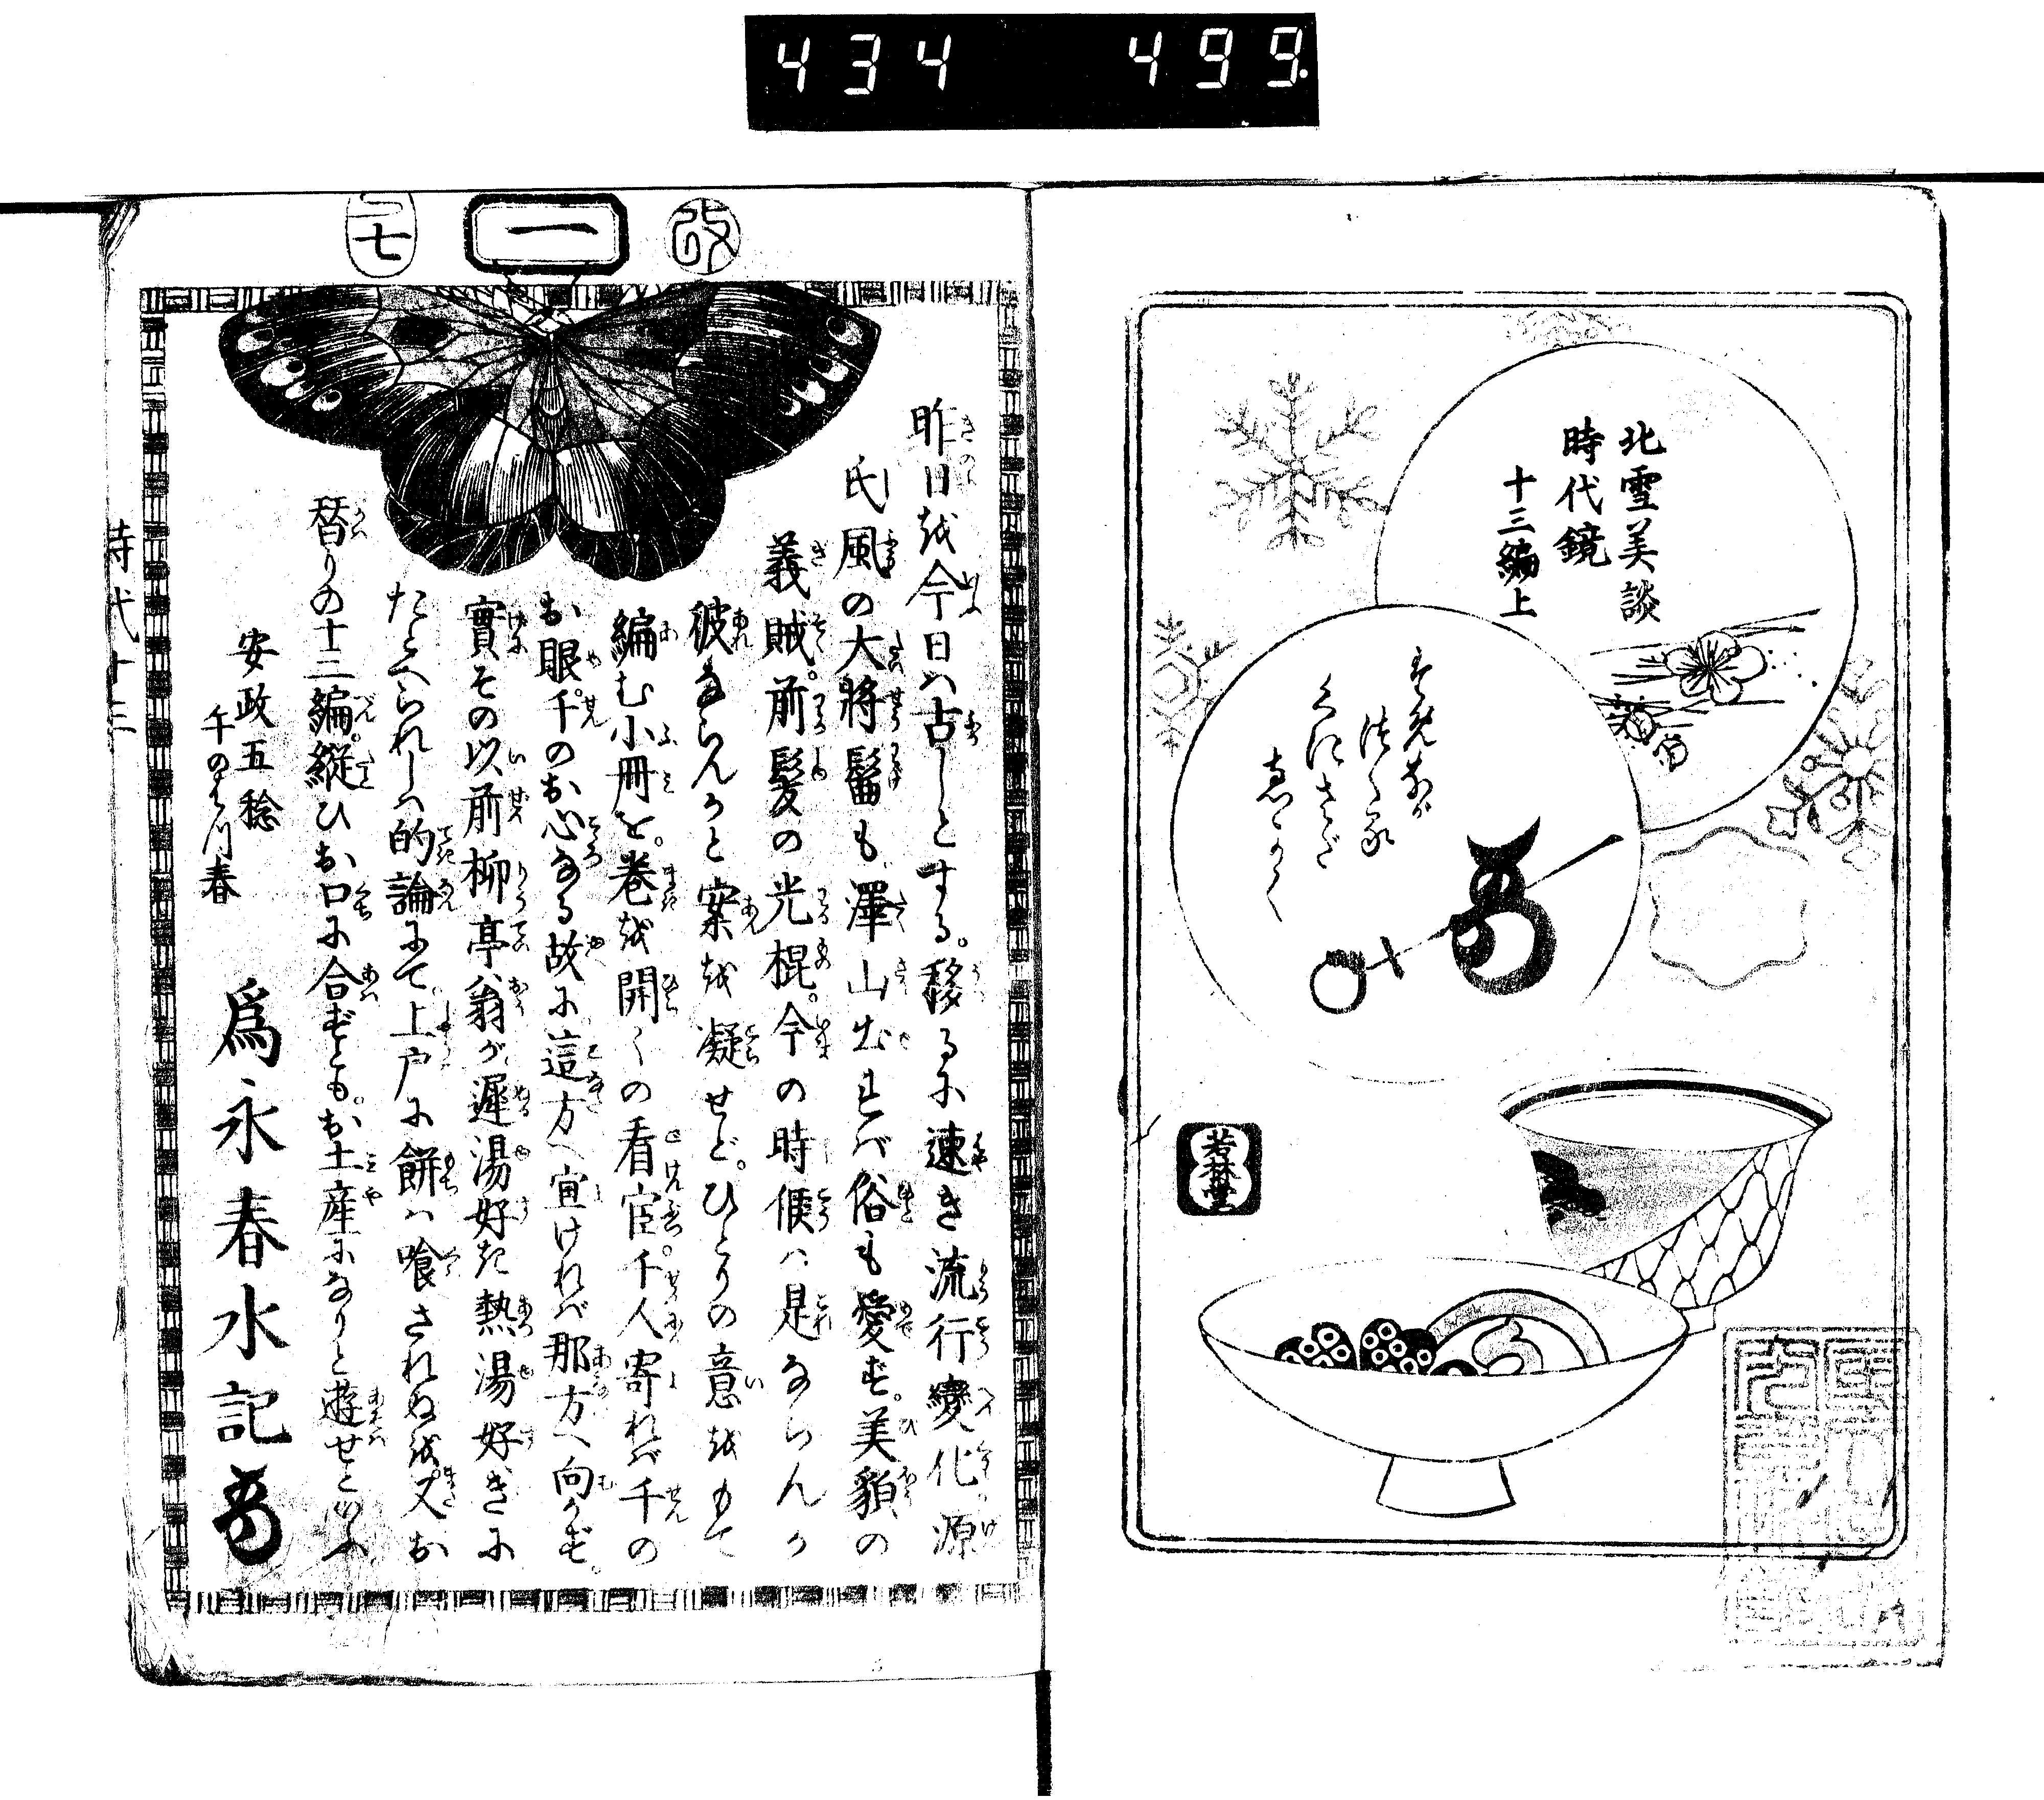 434 499
北雪美談
時代鏡
十三編上
若林堂
改
一
七
昨日を今日は古しとする。移るに速き流行變化。源
氏風の大將髷も。澤山出れば俗も愛ず。美貌の
義賊。前髪の光棍。今の時候は是ならんか
彼ならんかと案を凝せど。ひとりの意をもて
編む小冊を。巻を開くの看官。千人寄れば千の
お眼。千のお心なる故に這方へ宜ければ那方へ向かず。
實その以前柳亭翁が遲湯好き熱湯好きに
たとへられしは的論にて。上戸に餅は喰されぬを又お
替りの十三編。縦ひお口に合ずとも。お土産になりと遊せといふ
安政五稔
午のはつ春
爲永春水記
時代十三